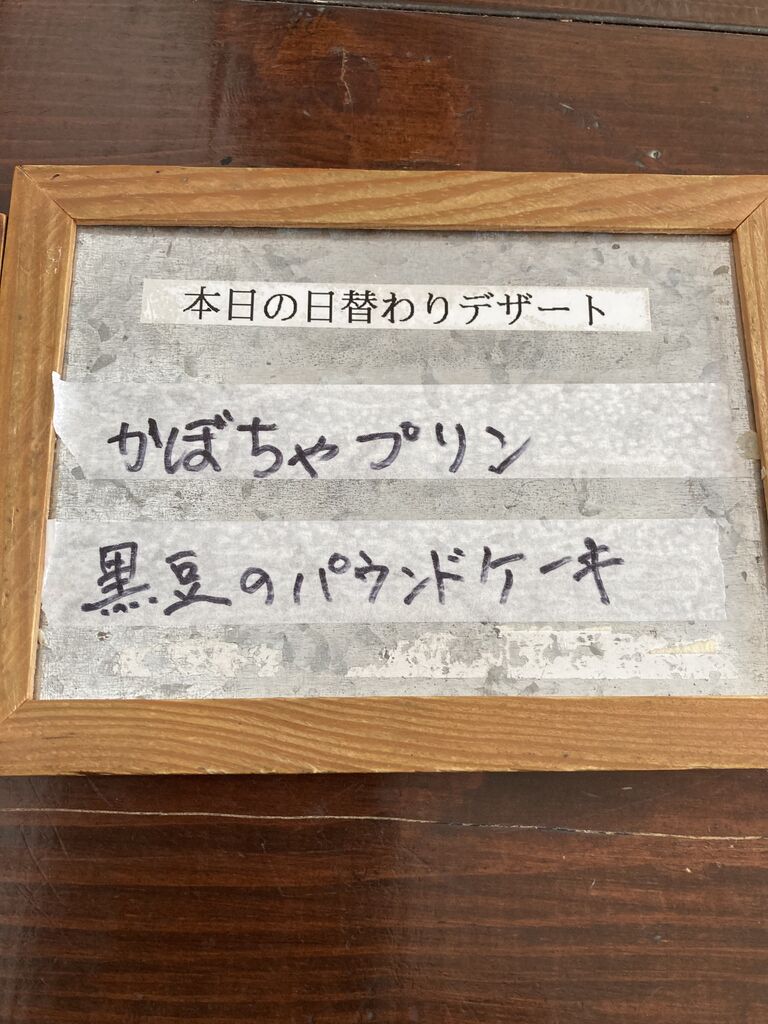 本日の日替わりデザート
かぼちゃプリン
黒豆のパウンドケーキ